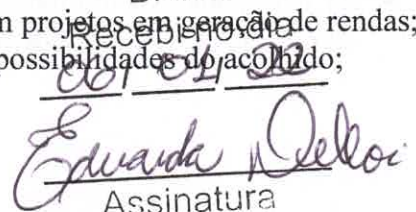 m projetos em geração de rendas;
Recebi no dia
possibilidades do acolhido;
06/04/20
Eduarda
Assinatura